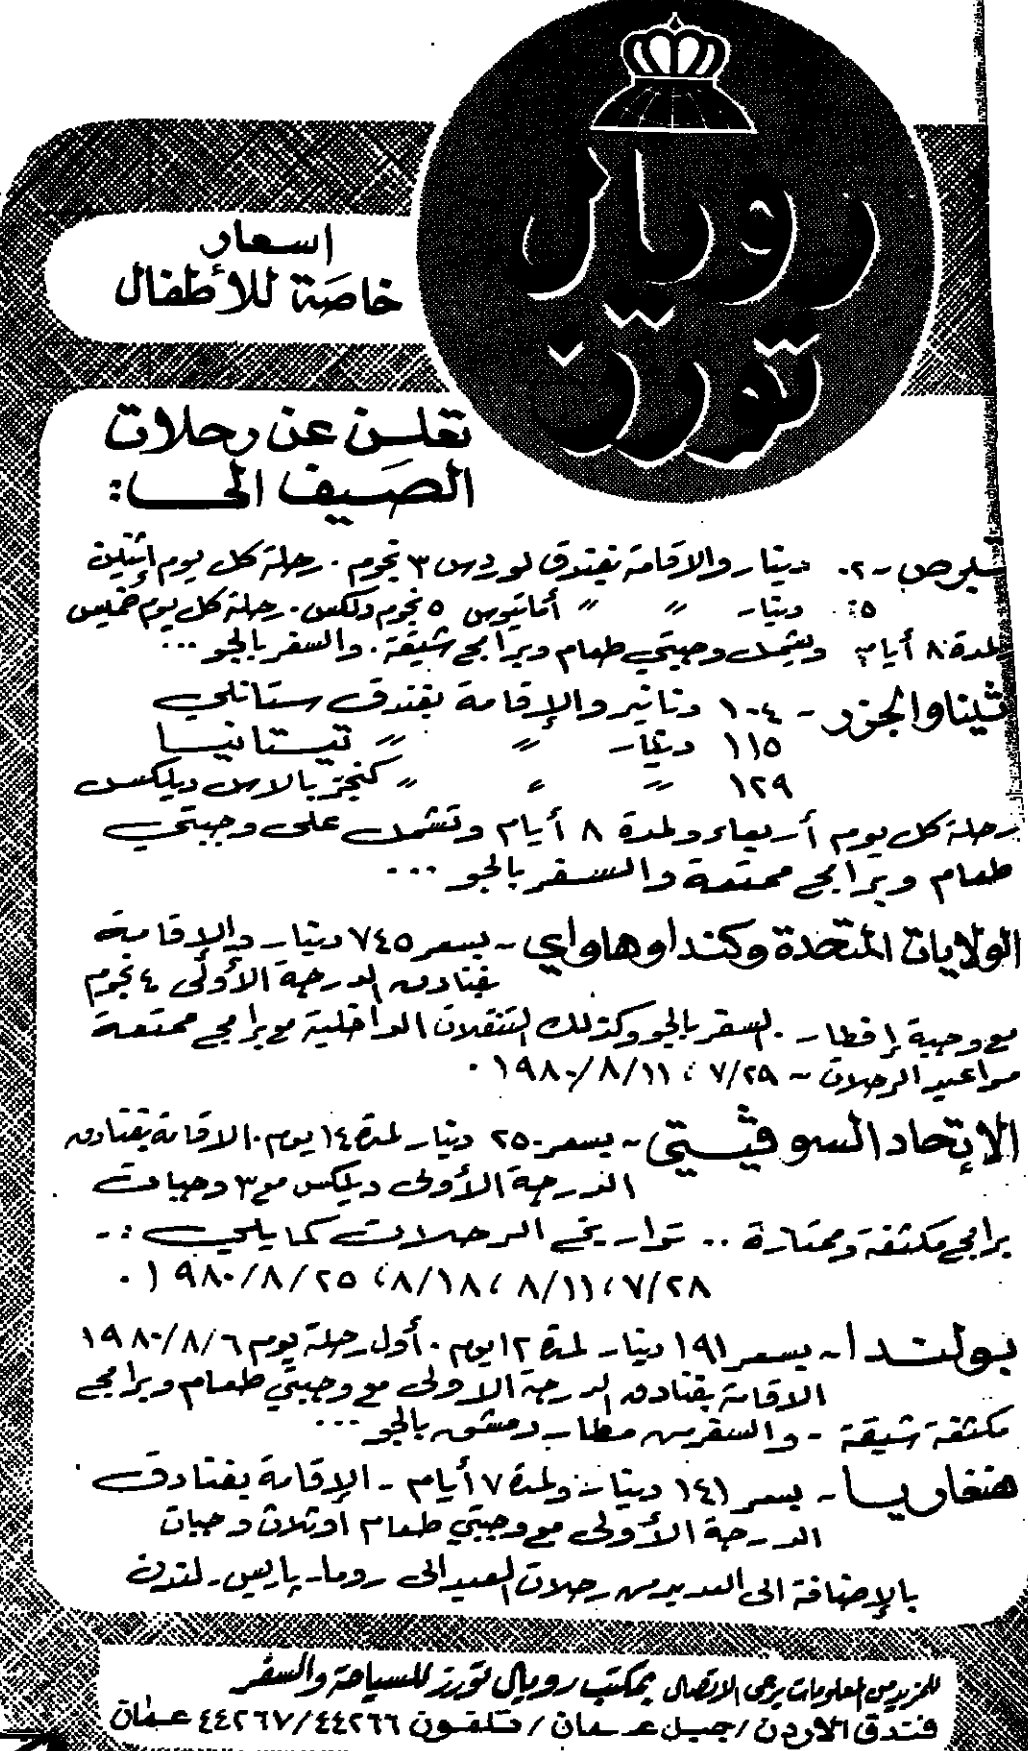 رويال
تورز
اسعار
خاصة للأطفال
تعلن عن رحلات
الصيف الى:
دينار والاقامة بفندق لوردس ٣ نجوم. رحلة كل يوم إثنين
دينار " " أماتيوس ٥ نجوم دلكس. رحلة كل يوم خميس
لمدة ٨ أيام وتشمل وجبتي طعام وبرامج شيقة. والسفر بالجو...
ڤيينا والجزر - ١٠٤ دنانير والإقامة بفندق ستانلي
١١٥ دينار " " تيتانيا
١٢٩ " " " كنجز بالاس ديلكس
رحلة كل يوم أربعاء ولمدة ٨ أيام وتشمل على وجبتي
طعام وبرامج ممتعة والسفر بالجو ...
الولايات المتحدة وكندا وهاواي - بسعر ٧٤٥ دينار والإقامة
بفنادق الدرجة الأولى ٤ نجوم
مع وجبة إفطار - السفر بالجو وكذلك التنقلات الداخلية مع برامج ممتعة
مواعيد الرحلات - ٧/٢٩ ، ١٩٨٠/٨/١١.
الإتحاد السوڤييتي - بسعر ٢٥٠ دينار لمدة ١٤ يوم. الاقامة بفنادق
الدرجة الأولى ديلكس مع ٣ وجبات
برامج مكثفة وممتازة .. تواريخ الرحلات كما يلي :-
٧/٢٨، ٨/١١، ٨/١٨، ١٩٨٠/٨/٢٥.
بولندا - بسعر ١٩١ دينار لمدة ١٢ يوم. أول رحلة يوم ١٩٨٠/٨/٦
الاقامة بفنادق الدرجة الاولى مع وجبتي طعام وبرامج
مكثفة شيقة - والسفر من مطار دمشق بالجو...
هنغاريا - بسعر ١٤١ دينار ولمدة ٧ أيام - الإقامة بفنادق
الدرجة الأولى مع وجبتي طعام أو ثلاث وجبات
بالإضافة الى العديد من رحلات العيد الى روما - باريس - لندن
للمزيد من المعلومات يرجى الاتصال بمكتب رويال تورز للسياحة والسفر
فندق الاردن / جبل عمان / تلفون ٤٤٢٦٧/٤٤٢٦٦ عمان